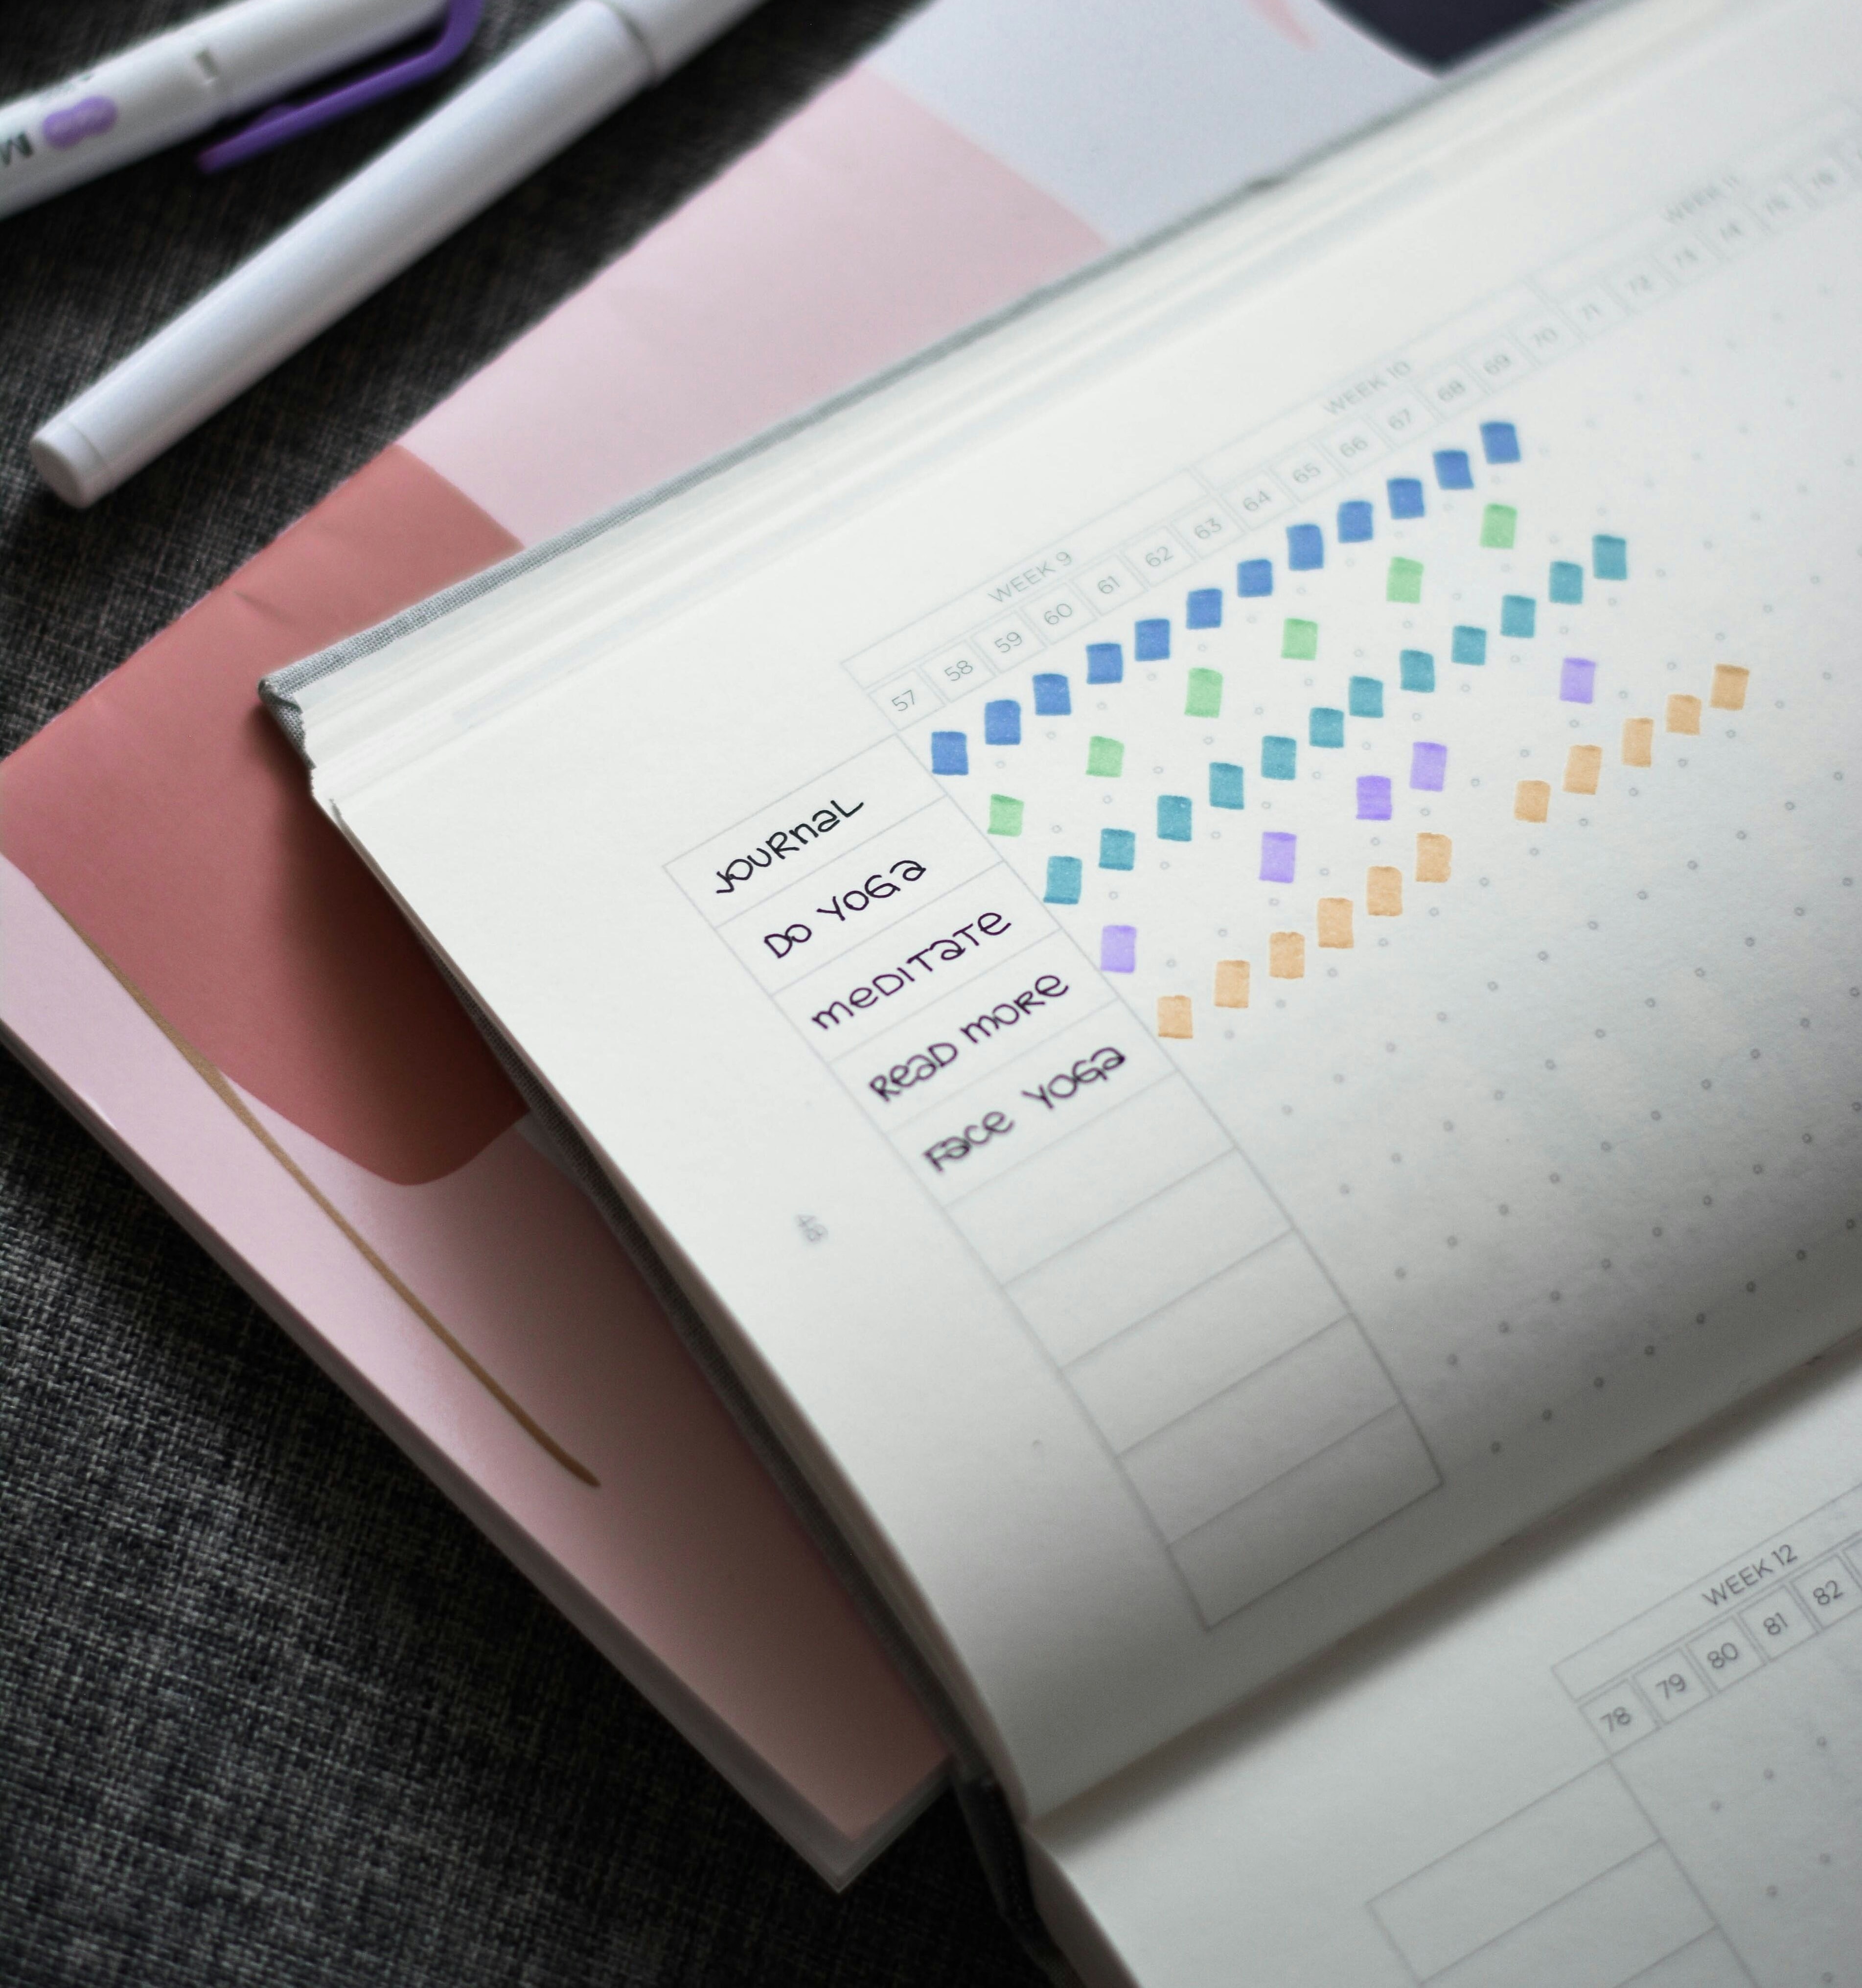 M
WEEK 9
57 58 59 60 61 62 63
WEEK 10
64 65 66 67 68 69 70
WEEK 11
71 72 73 74 75 76
JOURNAL
DO YOGA
MEDITATE
READ MORE
FACE YOGA
48
WEEK 12
78 79 80 81 82